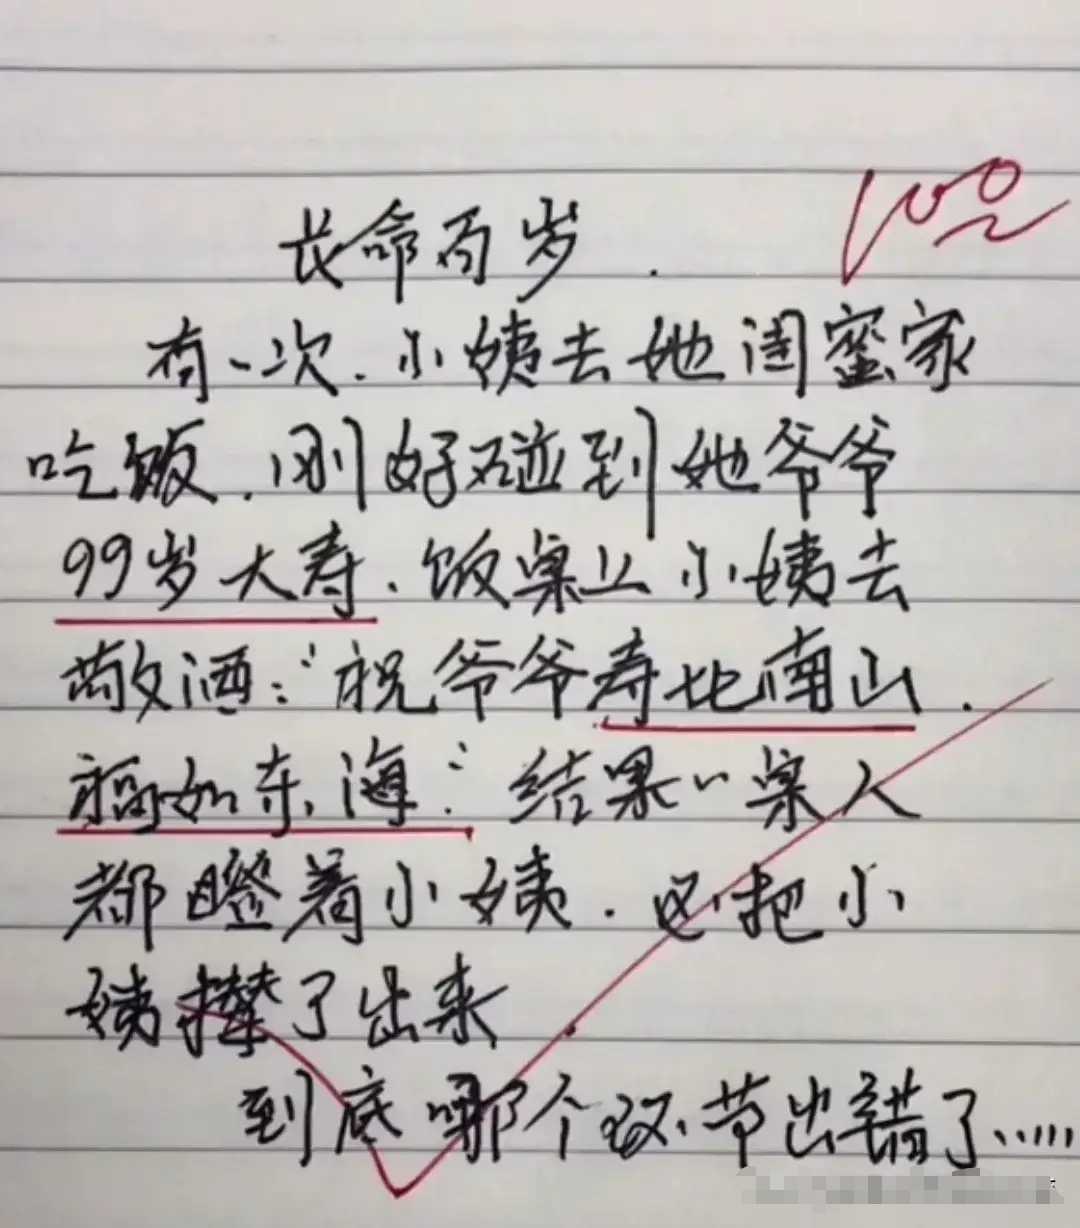 长命百岁.
100
有一次.小姨去她闺蜜家
吃饭.刚好碰到她爷爷
99岁大寿.饭桌上小姨去
敬酒:“祝爷爷寿比南山.
福如东海.”结果一桌人
都瞪着小姨.还把小
姨撵了出来
到底哪个环节出错了......